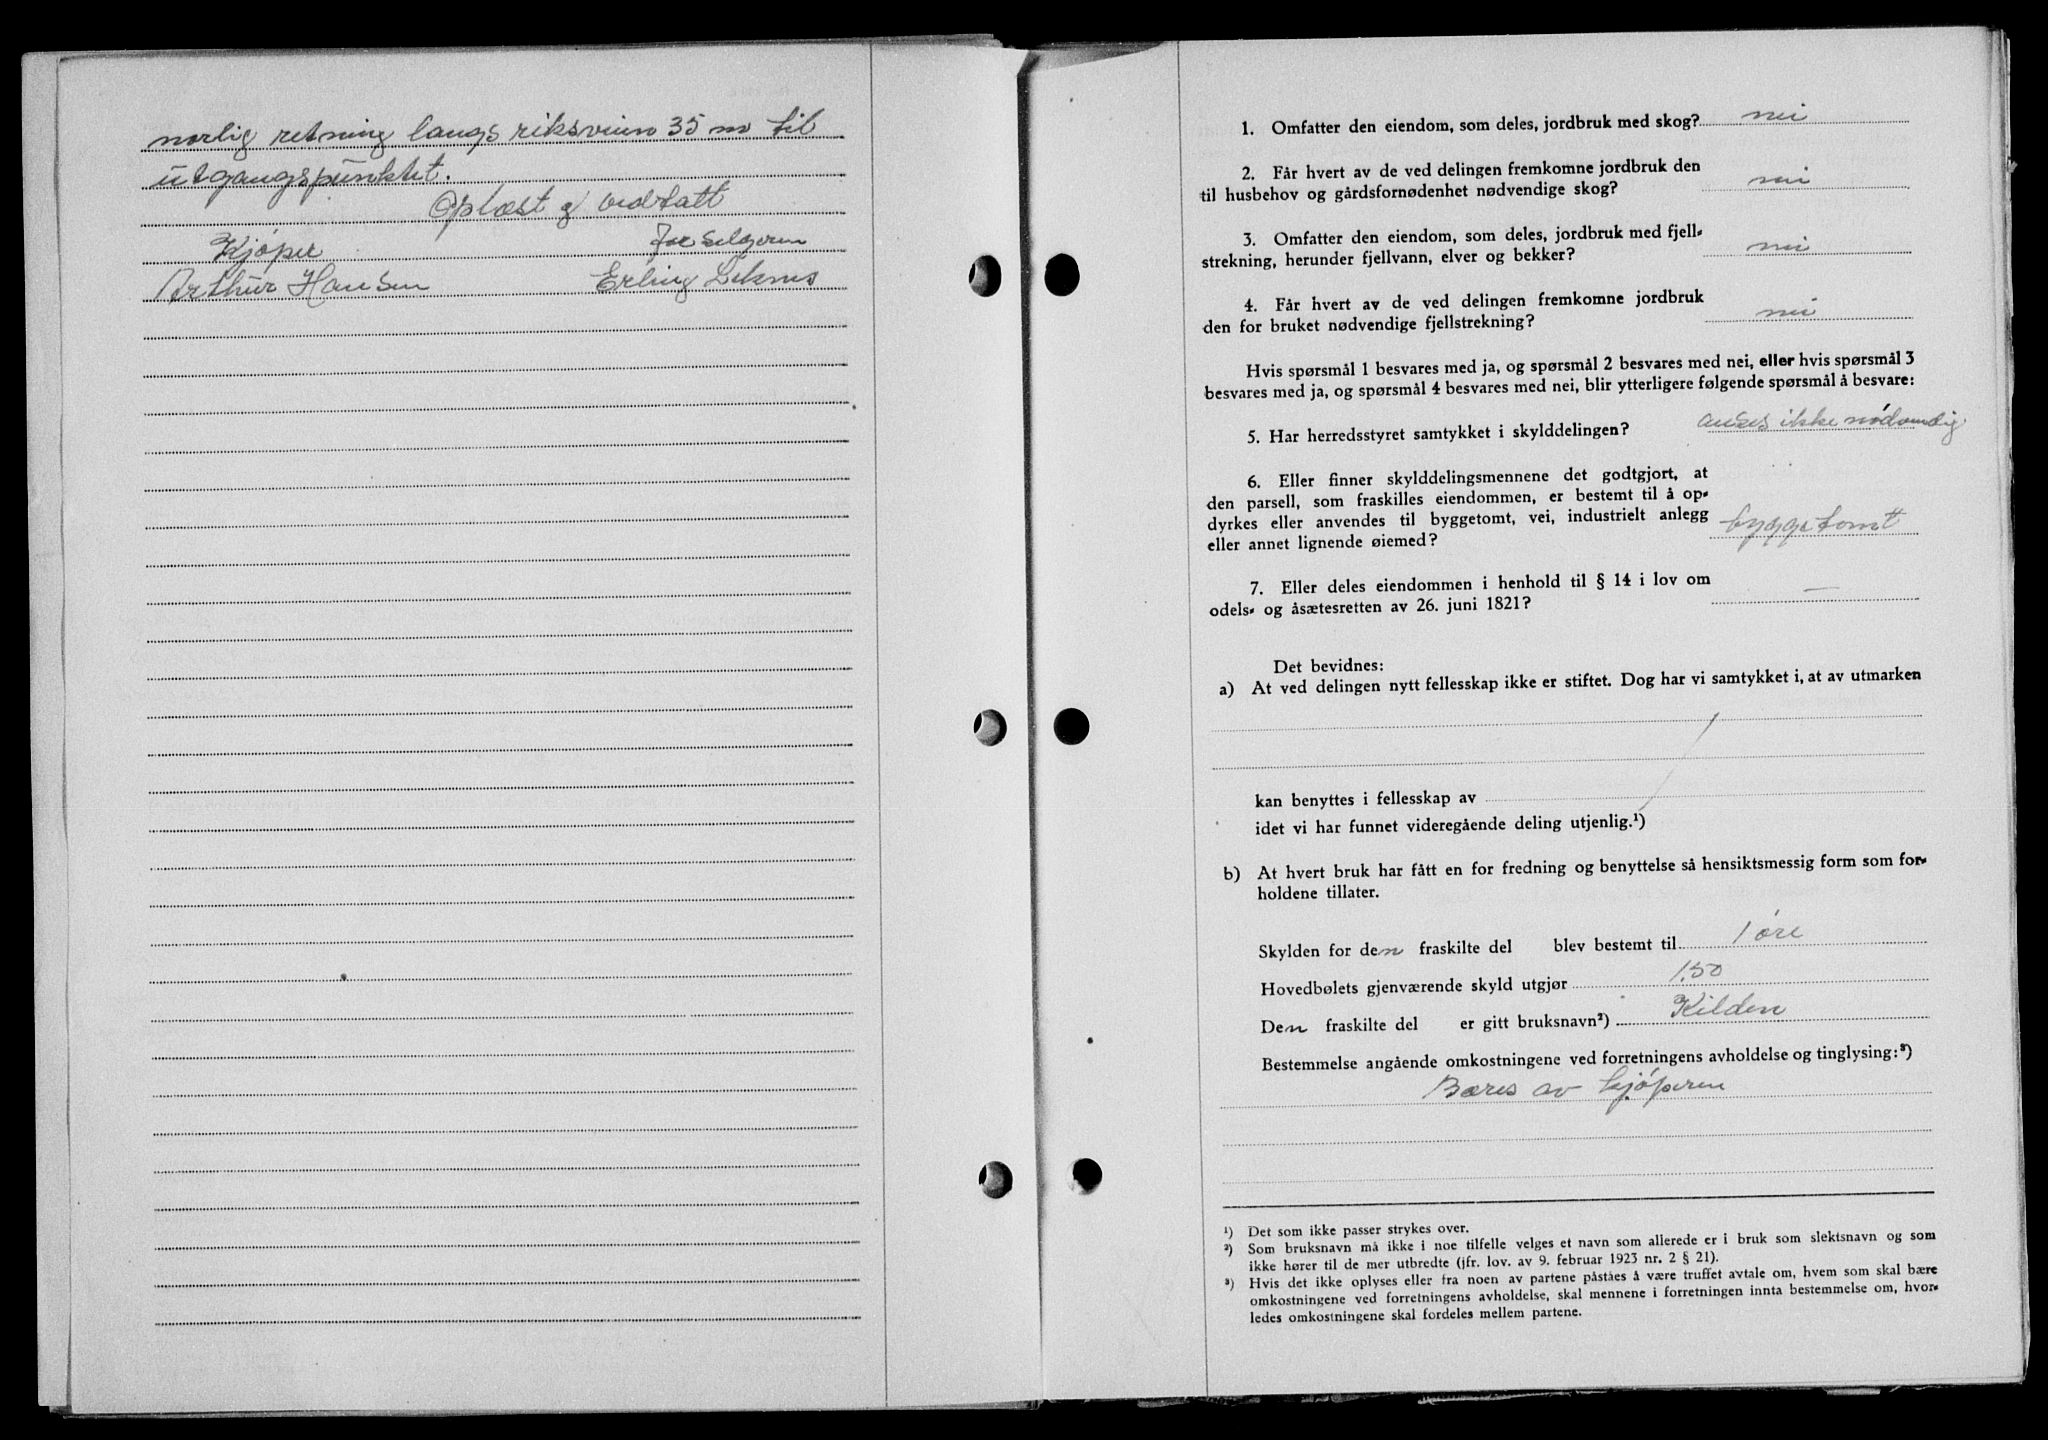 norlig retning langs riksveien 35 m til
utgangspunktet.
Oplæst og vedtatt
Kjøper
for selgeren
Arthur Hansen
Erling
1. Omfatter den eiendom, som deles, jordbruk med skog? nei
2. Får hvert av de ved delingen fremkomne jordbruk den
til husbehov og gårdsfornødenhet nødvendige skog? nei
3. Omfatter den eiendom, som deles, jordbruk med fjell-
strekning, herunder fjellvann, elver og bekker? nei
4. Får hvert av de ved delingen fremkomne jordbruk
den for bruket nødvendige fjellstrekning? nei
Hvis spørsmål 1 besvares med ja, og spørsmål 2 besvares med nei, eller hvis spørsmål 3
besvares med ja, og spørsmål 4 besvares med nei, blir ytterligere følgende spørsmål å besvare:
5. Har herredsstyret samtykket i skylddelingen? anses ikke nødvendig
6. Eller finner skylddelingsmennene det godtgjort, at
den parsell, som fraskilles eiendommen, er bestemt til å op-
dyrkes eller anvendes til byggetomt, vei, industrielt anlegg
eller annet lignende øiemed? byggetomt
7. Eller deles eiendommen i henhold til § 14 i lov om
odels- og åsætesretten av 26. juni 1821? —
Det bevidnes:
a) At ved delingen nytt fellesskap ikke er stiftet. Dog har vi samtykket i, at av utmarken
kan benyttes i fellesskap av
idet vi har funnet videregående deling utjenlig.¹)
b) At hvert bruk har fått en for fredning og benyttelse så hensiktsmessig form som for-
holdene tillater.
Skylden for den fraskilte del blev bestemt til 1 øre
Hovedbølets gjenværende skyld utgjør 1.50
Den fraskilte del er gitt bruksnavn²) Kilden
Bestemmelse angående omkostningene ved forretningens avholdelse og tinglysing:³)
Bæres av kjøperen
¹) Det som ikke passer strykes over.
²) Som bruksnavn må ikke i noe tilfelle velges et navn som allerede er i bruk som slektsnavn og som
ikke hører til de mer utbredte (jfr. lov. av 9. februar 1923 nr. 2 § 21).
³) Hvis det ikke oplyses eller fra noen av partene påståes å være truffet avtale om, hvem som skal bære
omkostningene ved forretningens avholdelse, skal mennene i forretningen innta bestemmelse om, hvor-
ledes omkostningene skal fordeles mellem partene.